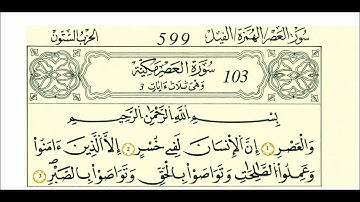 سُورَةُ العَصْرِ/الهُمَزَةِ/الفِيْلِ 599 الحِزْبُ السِّتُّونَ
سُورَةُ الْعَصْرِ مَكِّيَّةٌ 103
وَهِيَ ثَلَاثُ ءَايَاتٍ 3
بِسْمِ اللَّهِ الرَّحْمَٰنِ الرَّحِيمِ
وَالْعَصْرِ 1 إِنَّ الْإِنْسَانَ لَفِي خُسْرٍ 2 إِلَّا الَّذِينَ ءَامَنُوا
وَعَمِلُوا الصَّالِحَاتِ وَتَوَاصَوْا بِالْحَقِّ وَتَوَاصَوْا بِالصَّبْرِ 3